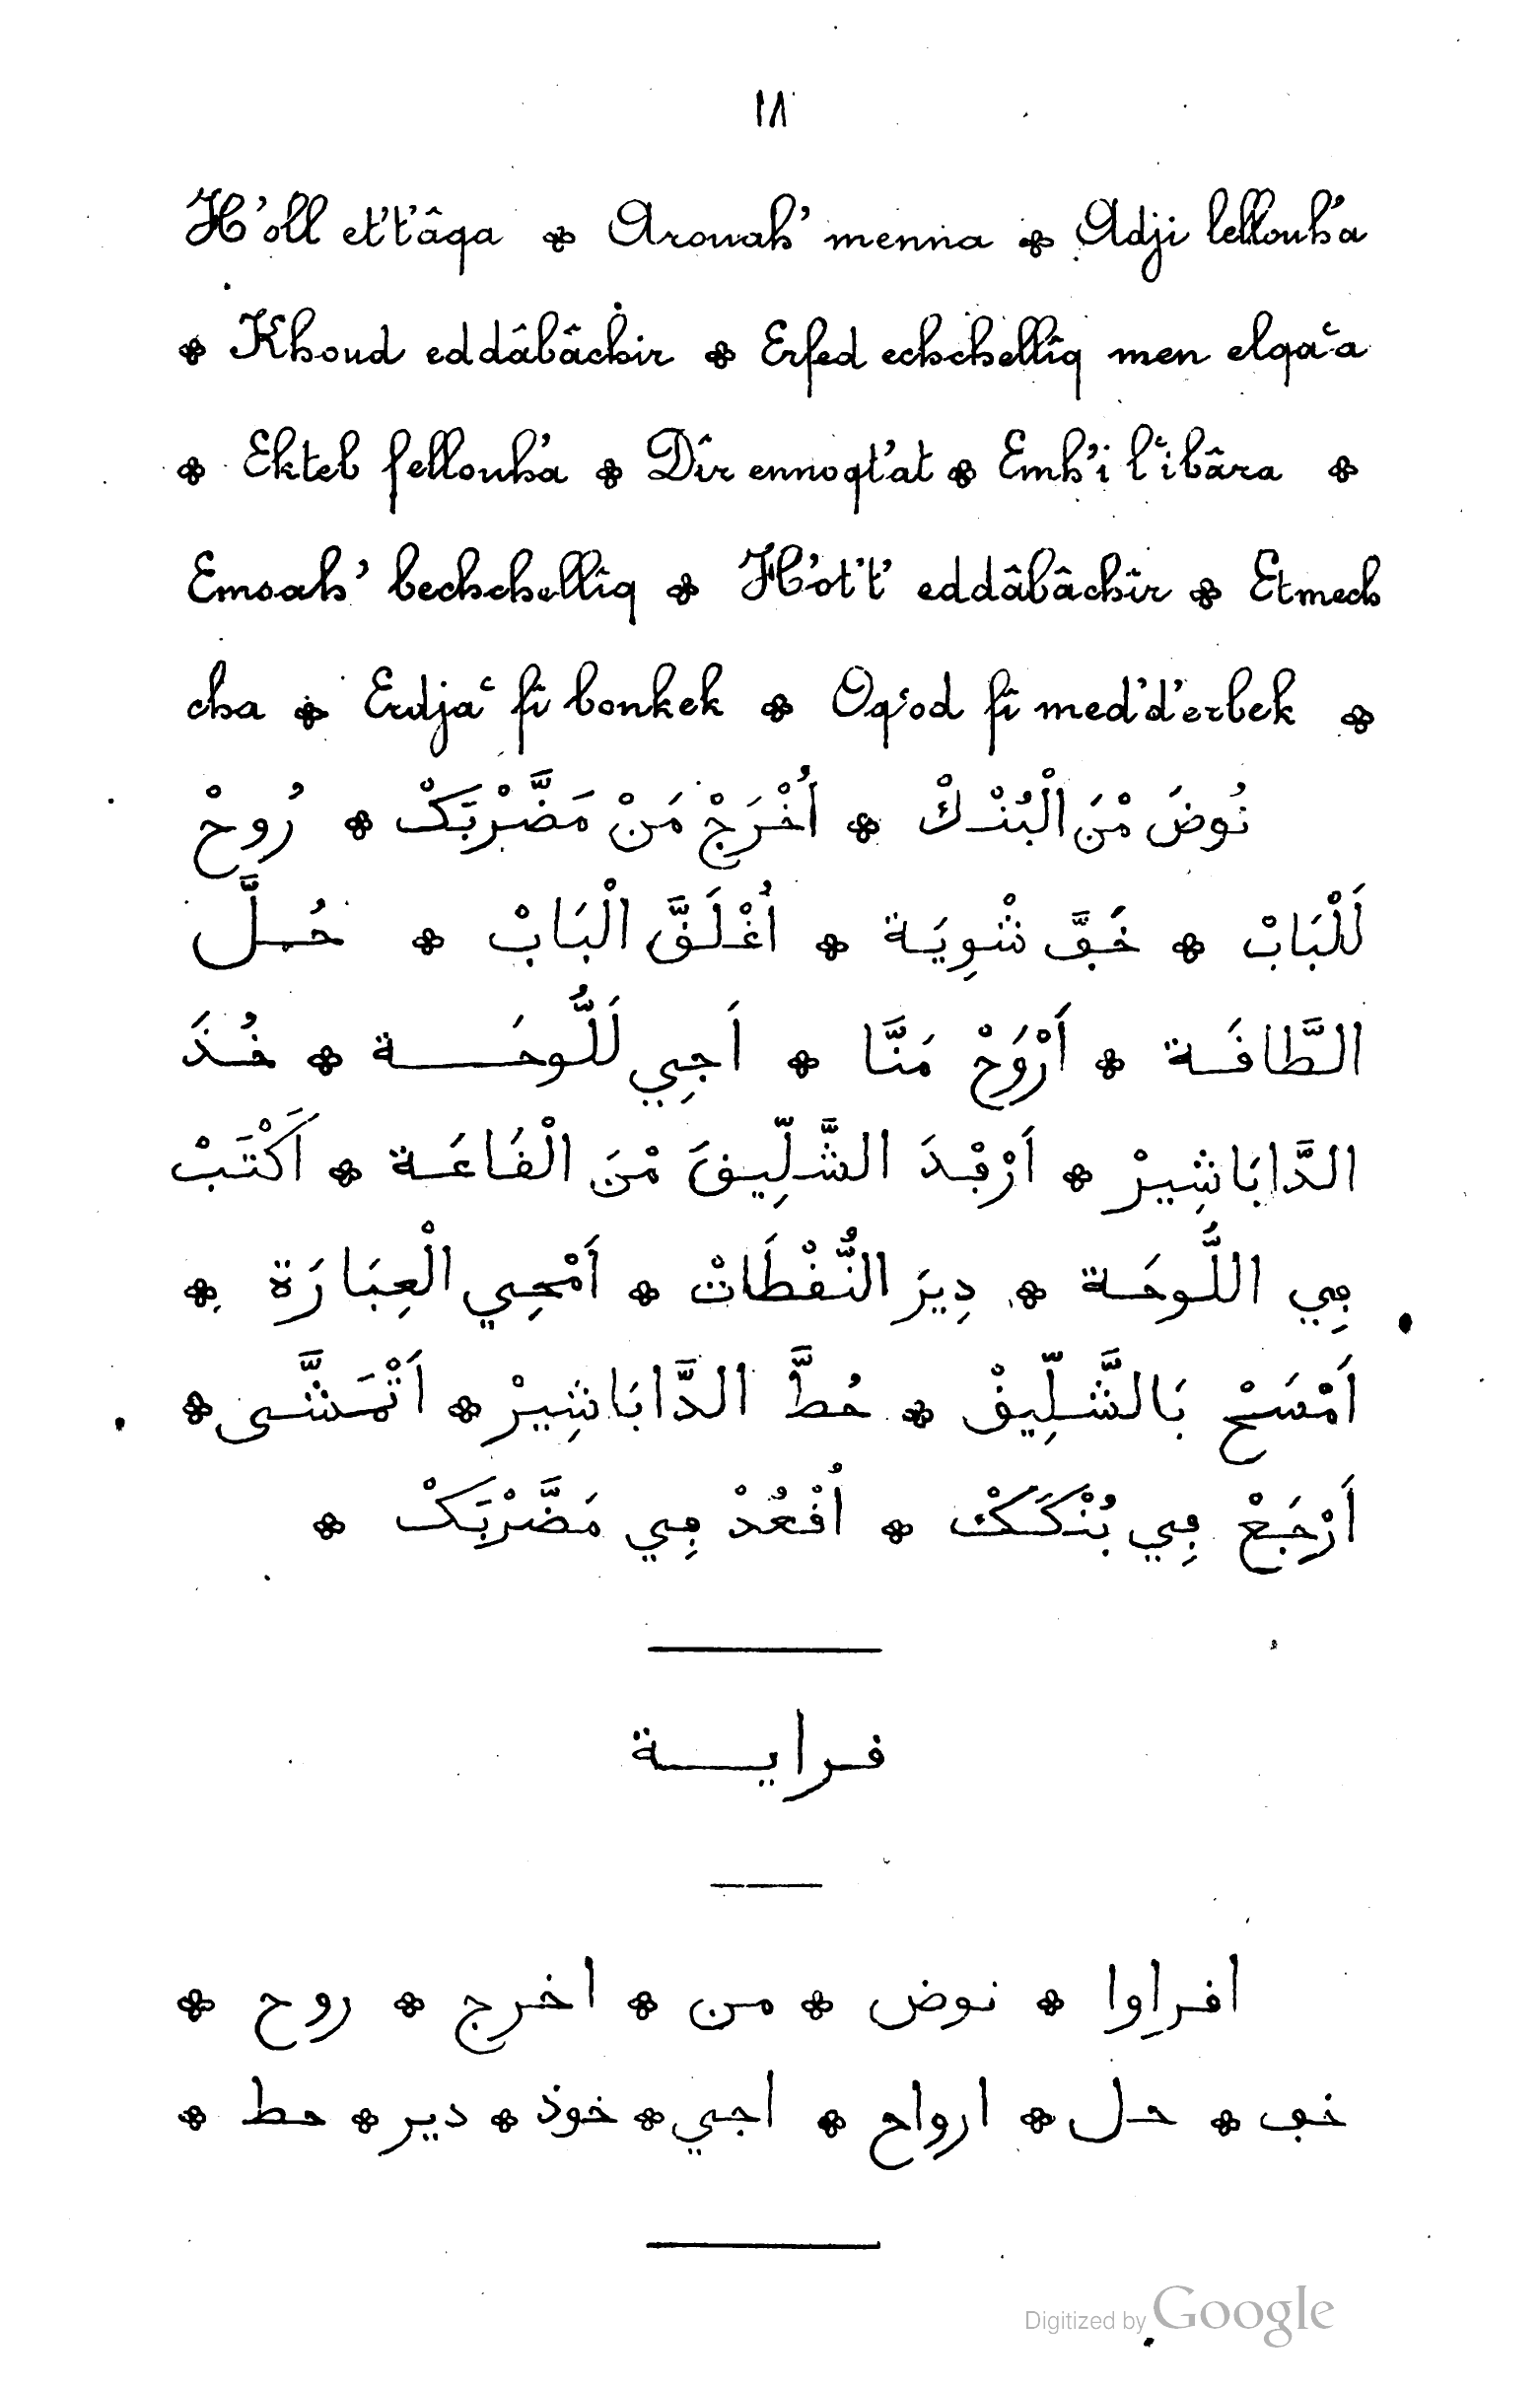 ١٨
H'oll et't'âqa ✤ Arouah' menna ✤ Adji lellouh'a
✤ Khoud eddâbâchir ✤ Erfed echchellîq men elqaʿa
✤ Ekteb fellouh'a ✤ Dîr ennoqt'at ✤ Emh'i lʿibâra ✤
Emsah' bechchellîq ✤ H'ot't' eddâbâchîr ✤ Etmech
cha ✤ Erdjaʿ fî bonkek ✤ Oqʿod fî med'd'erbek ✤
نُوضَ مْنَ الْبُنْدكْ ✤ أُخْرَجْ مَنْ مَضَّرْبَكْ ✤ رُوحْ
لَلْبَابْ ✤ خَڢَّ شْوِيَة ✤ أُغْلَڧَّ الْبَابْ ✤ حُلَّ
الطَّاڧَة ✤ أَرْوَحْ مَنَّا ✤ اَجِي لَلُّوحَة ✤ خُذَ
الدَّابَاشِيرْ ✤ اَرْڢْدَ الشَّلِّيڧَ مْنَ الْڧَاعَة ✤ اَكْتَبْ
ڢِي اللُّوحَة ✤ دِيرَ النُّڧْطَاتْ ✤ اَمْحِي الْعِبَارَة ✤
اَمْسَحْ بَالشَّلِّيڧْ ✤ حُطَّ الدَّابَاشِيرْ ✤ اَتْمَشَّى ✤
اَرْجَعْ ڢِي بُنْكَكْ ✤ اُڧْعُدْ ڢِي مَضَّرْبَكْ ✤
ڧراية
اڧراوا ✤ نوض ✤ من ✤ اخرج ✤ روح ✤
خڢ ✤ حل ✤ ارواح ✤ اجي ✤ خوذ ✤ دير ✤ حط ✤
Digitized by Google